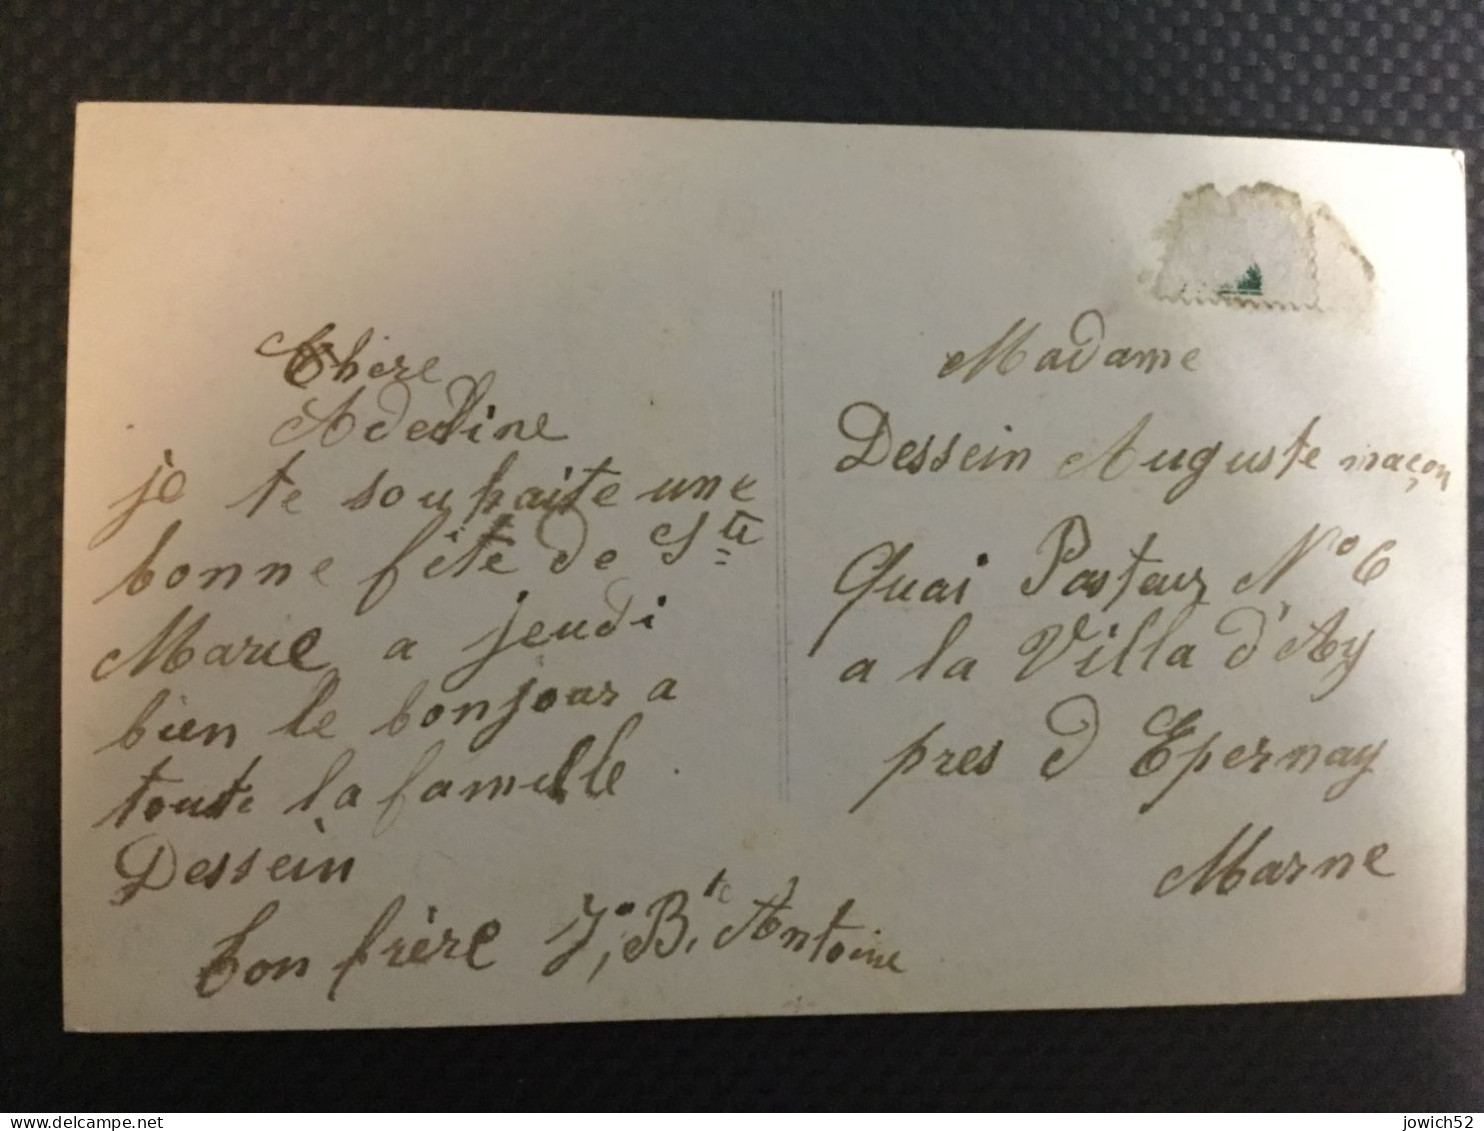 Chère
Adeline
je te souhaite une
bonne fête de Ste
Marie a jeudi
bien le bonjour a
toute la famille
Dessein
ton frère J, B.te Antoine
Madame
Dessein Auguste maçon
Quai Pasteur N° 6
a la Villa d'Ay
pres d Epernay
Marne
www.delcampe.net
jowich52